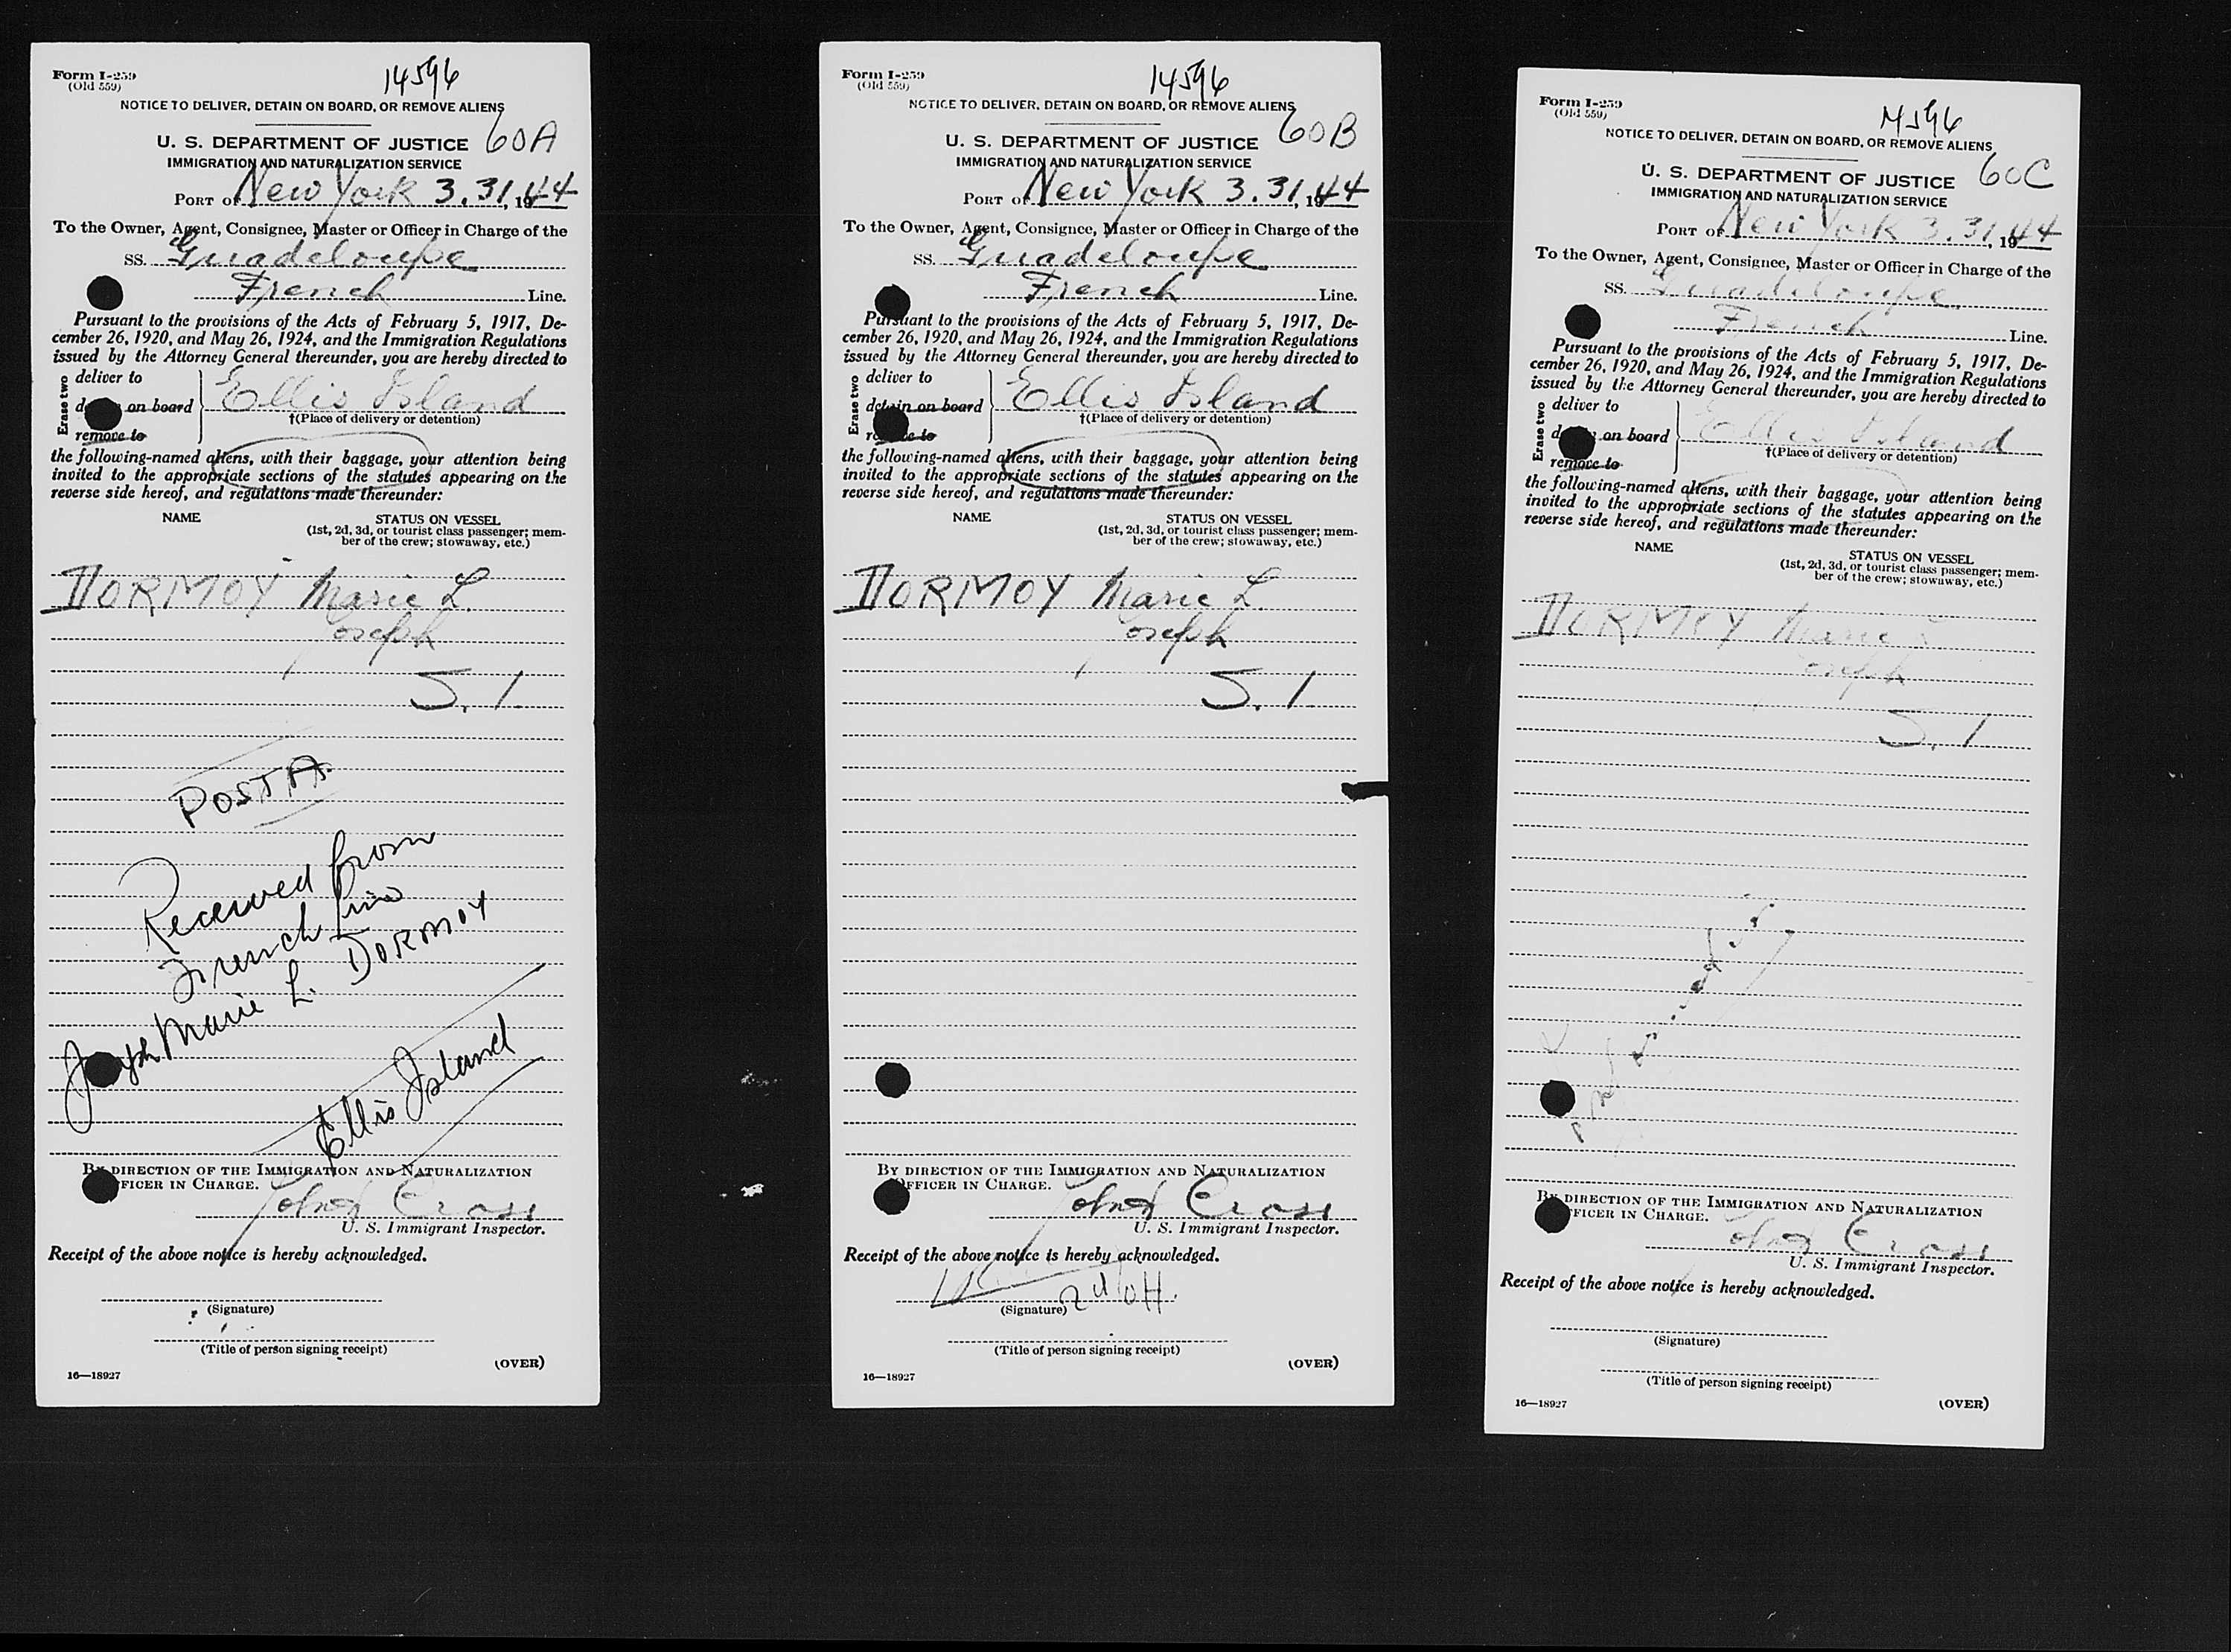 Form I-259
(Old 559)
14596
NOTICE TO DELIVER, DETAIN ON BOARD, OR REMOVE ALIENS
60A
U. S. DEPARTMENT OF JUSTICE
IMMIGRATION AND NATURALIZATION SERVICE
PORT OF New York 3.31, 1944
To the Owner, Agent, Consignee, Master or Officer in Charge of the
SS. Guadeloupe
French Line.
Pursuant to the provisions of the Acts of February 5, 1917, De-
cember 26, 1920, and May 26, 1924, and the Immigration Regulations
issued by the Attorney General thereunder, you are hereby directed to
Erase two
deliver to
on board
remove to
Ellis Island
†(Place of delivery or detention)
the following-named aliens, with their baggage, your attention being
invited to the appropriate sections of the statutes appearing on the
reverse side hereof, and regulations made thereunder:
NAME
STATUS ON VESSEL
(1st, 2d, 3d, or tourist class passenger; mem-
ber of the crew; stowaway, etc.)
DORMOY Marie L.
Joseph
S. 1
POST A.
Received from
French Line
Joseph Marie L. DORMOY
Ellis Island
BY DIRECTION OF THE IMMIGRATION AND NATURALIZATION
OFFICER IN CHARGE.
John Cross
U. S. Immigrant Inspector.
Receipt of the above notice is hereby acknowledged.
(Signature)
(Title of person signing receipt)
(OVER)
16—18927
Form I-259
(Old 559)
14596
NOTICE TO DELIVER, DETAIN ON BOARD, OR REMOVE ALIENS
60B
U. S. DEPARTMENT OF JUSTICE
IMMIGRATION AND NATURALIZATION SERVICE
PORT OF New York 3.31, 1944
To the Owner, Agent, Consignee, Master or Officer in Charge of the
SS. Guadeloupe
French Line.
Pursuant to the provisions of the Acts of February 5, 1917, De-
cember 26, 1920, and May 26, 1924, and the Immigration Regulations
issued by the Attorney General thereunder, you are hereby directed to
Erase two
deliver to
detain on board
remove to
Ellis Island
†(Place of delivery or detention)
the following-named aliens, with their baggage, your attention being
invited to the appropriate sections of the statutes appearing on the
reverse side hereof, and regulations made thereunder:
NAME
STATUS ON VESSEL
(1st, 2d, 3d, or tourist class passenger; mem-
ber of the crew; stowaway, etc.)
DORMOY Marie L.
Joseph
S. 1
BY DIRECTION OF THE IMMIGRATION AND NATURALIZATION
OFFICER IN CHARGE.
John Cross
U. S. Immigrant Inspector.
Receipt of the above notice is hereby acknowledged.
(Signature)
(Title of person signing receipt)
(OVER)
16—18927
Form I-259
(Old 559)
14596
NOTICE TO DELIVER, DETAIN ON BOARD, OR REMOVE ALIENS
60C
U. S. DEPARTMENT OF JUSTICE
IMMIGRATION AND NATURALIZATION SERVICE
PORT OF New York 3.31, 1944
To the Owner, Agent, Consignee, Master or Officer in Charge of the
SS. Guadeloupe
French Line.
Pursuant to the provisions of the Acts of February 5, 1917, De-
cember 26, 1920, and May 26, 1924, and the Immigration Regulations
issued by the Attorney General thereunder, you are hereby directed to
Erase two
deliver to
on board
remove to
Ellis Island
†(Place of delivery or detention)
the following-named aliens, with their baggage, your attention being
invited to the appropriate sections of the statutes appearing on the
reverse side hereof, and regulations made thereunder:
NAME
STATUS ON VESSEL
(1st, 2d, 3d, or tourist class passenger; mem-
ber of the crew; stowaway, etc.)
DORMOY Marie L
Joseph
S. 1
BY DIRECTION OF THE IMMIGRATION AND NATURALIZATION
OFFICER IN CHARGE.
John Cross
U. S. Immigrant Inspector.
Receipt of the above notice is hereby acknowledged.
(Signature)
(Title of person signing receipt)
(OVER)
16—18927